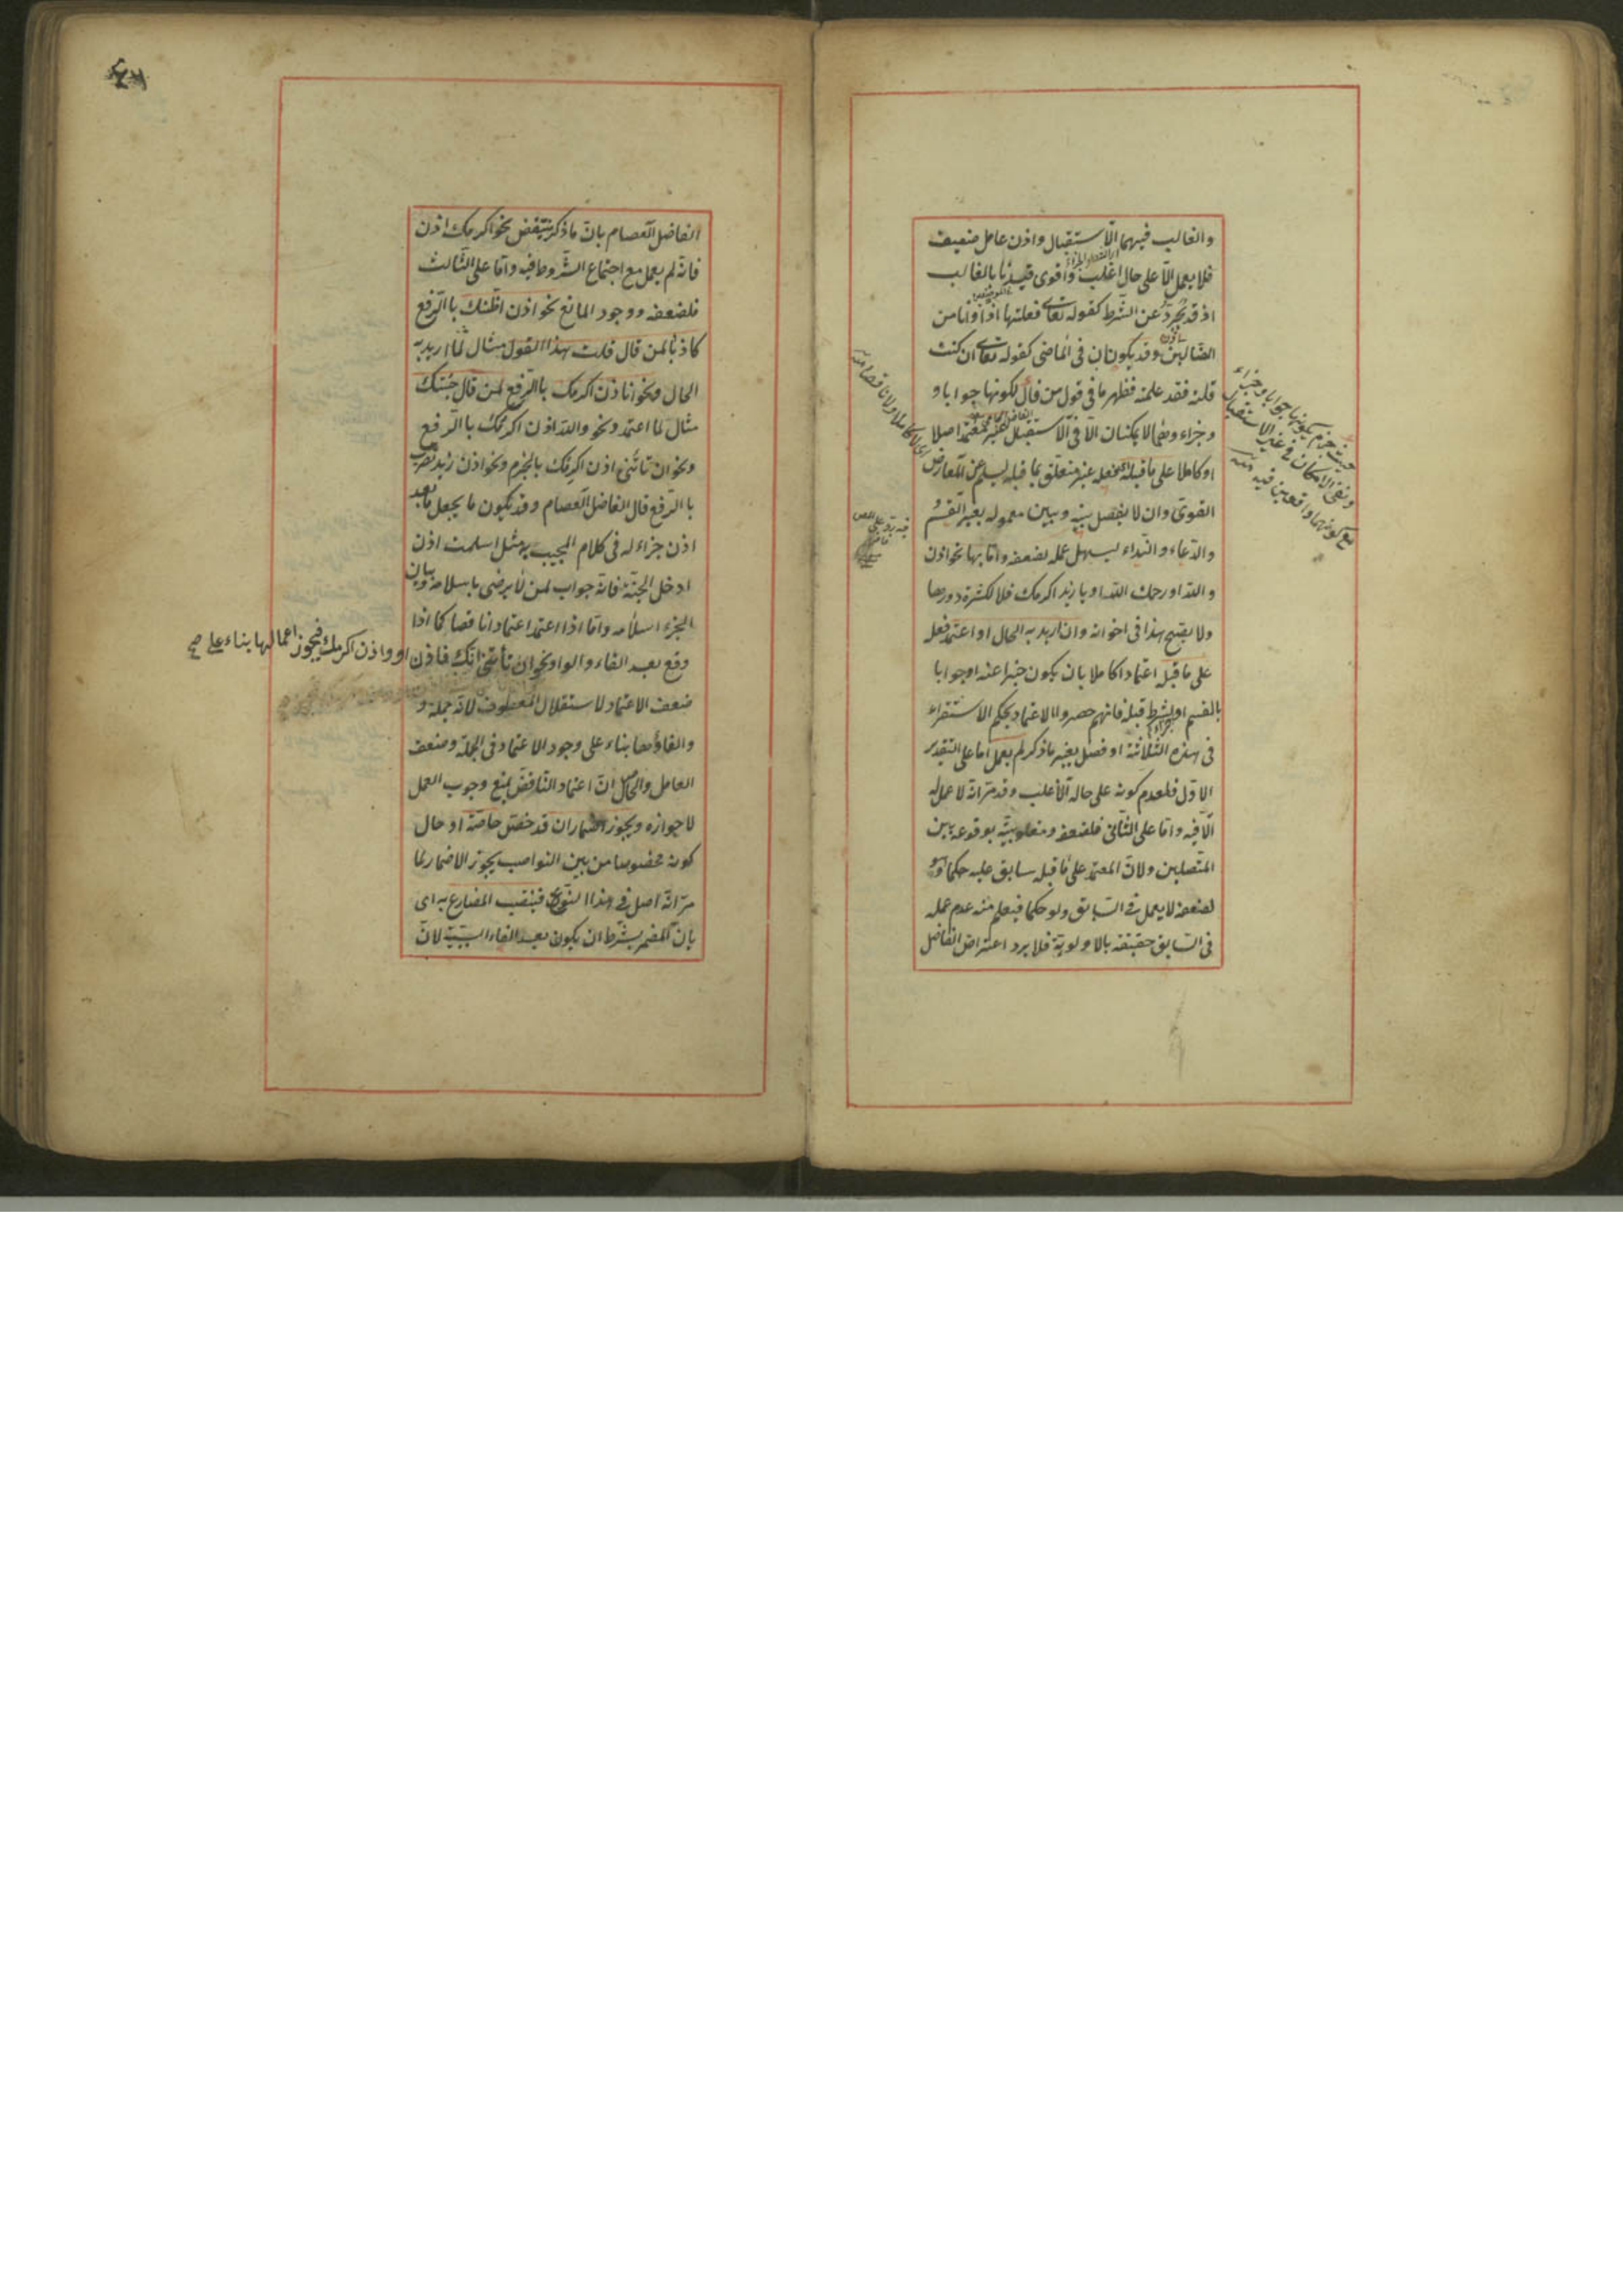 والغالب فيهما الاستقبال واذن عامل ضعيف
فلا يعمل الا على حال اغلب واقوى قيدنا بالغالب
اذ قد تجرد عن الشرط كقوله تعالى فعلتها اذا وانا من
الضالين وقد يكونان في الماضي كقوله تعالى ان كنت
قلته فقد علمته فظهر ما في قول من قال لكونها جوابا و
وجزاء وهما لا يمكنان الا في الاستقبال غير معتمد اصلا
او كاملا على ما قبله فعله غير متعلق بما قبله ليسلم عن المعارض
القوى وان لا يفصل بينه وبين معموله بغير القسم
والدعاء والنداء ليسهل عمله لضعفه واما بها نحو اذن
والله او رحمك الله او يا زيد اكرمك فلا لكثرة دورها
ولا يقبح هذا في اخواته وان اريد به الحال او اعتمد فعله
على ما قبله اعتمادا كاملا بان يكون خبرا عنه او جوابا
بالقسم او لشرط قبله فانهم حصروا الاعتماد بحكم الاستقراء
في هذه الثلاثة او فصل بغير ما ذكر لم يعمل اما على التقدير
الاول فلعدم كونه على حاله الاغلب وقد مر انه لا عمل له
الا فيه واما على الثاني فلضعفه ومغلوبيته بوقوعه بين
المتصلين ولان المعتمد على ما قبله سابق عليه حكما وهو
لضعفه لا يعمل في السابق ولو حكما فيعلم منه عدم عمله
في السابق حقيقة بالاولوية فلا يرد اعتراض الفاضل
حيث جزم بكونها جوابا وجزاء
ونفى الامكان في غير الاستقبال
مع كونهما واقعين فيه منه
اى لا كاملا ولا ناقصا منه
الفاضل العصام بان ما ذكر ينتقض بنحو اكرمك اذن
فانه لم يعمل مع اجتماع الشروط فيه واما على الثالث
فلضعفه ووجود المانع نحو اذن اظنك بالرفع
كاذبا لمن قال قلت هذا القول مثال لما اريد به
الحال ونحو انا اذن اكرمك بالرفع لمن قال جئتك
مثال لما اعتمد ونحو والله اذن اكرمك بالرفع
ونحو ان تأتني اذن اكرمك بالجزم ونحو اذن زيد تضرب
بالرفع قال الفاضل العصام وقد يكون ما يجعل ما بعد
اذن جزاء له في كلام المجيب مثل اسلمت اذن
ادخل الجنة فانه جواب لمن لا يرضى باسلامه وبيان
الجزاء اسلامه واما اذا اعتمد اعتمادا ناقصا كما اذا
وقع بعد الفاء والواو نحو ان تأتني آتك فاذن او واذن اكرمك فيجوز اعمالها بناء على صح
ضعف الاعتماد لاستقلال المعطوف لانه جملة و
والغاؤها بناء على وجود الاعتماد في الجملة وضعف
العامل والحاصل ان اعتماد الناقص يمنع وجوب العمل
لا جوازه ويجوز اضمار ان قد خصت خاصة او حال
كونه مخصوصا من بين النواصب بجواز الاضمار لما
مر انه اصل في هذا النوع فينصب المضارع به اى
بان المضمر بشرط ان يكون بعد الفاء السببية لان